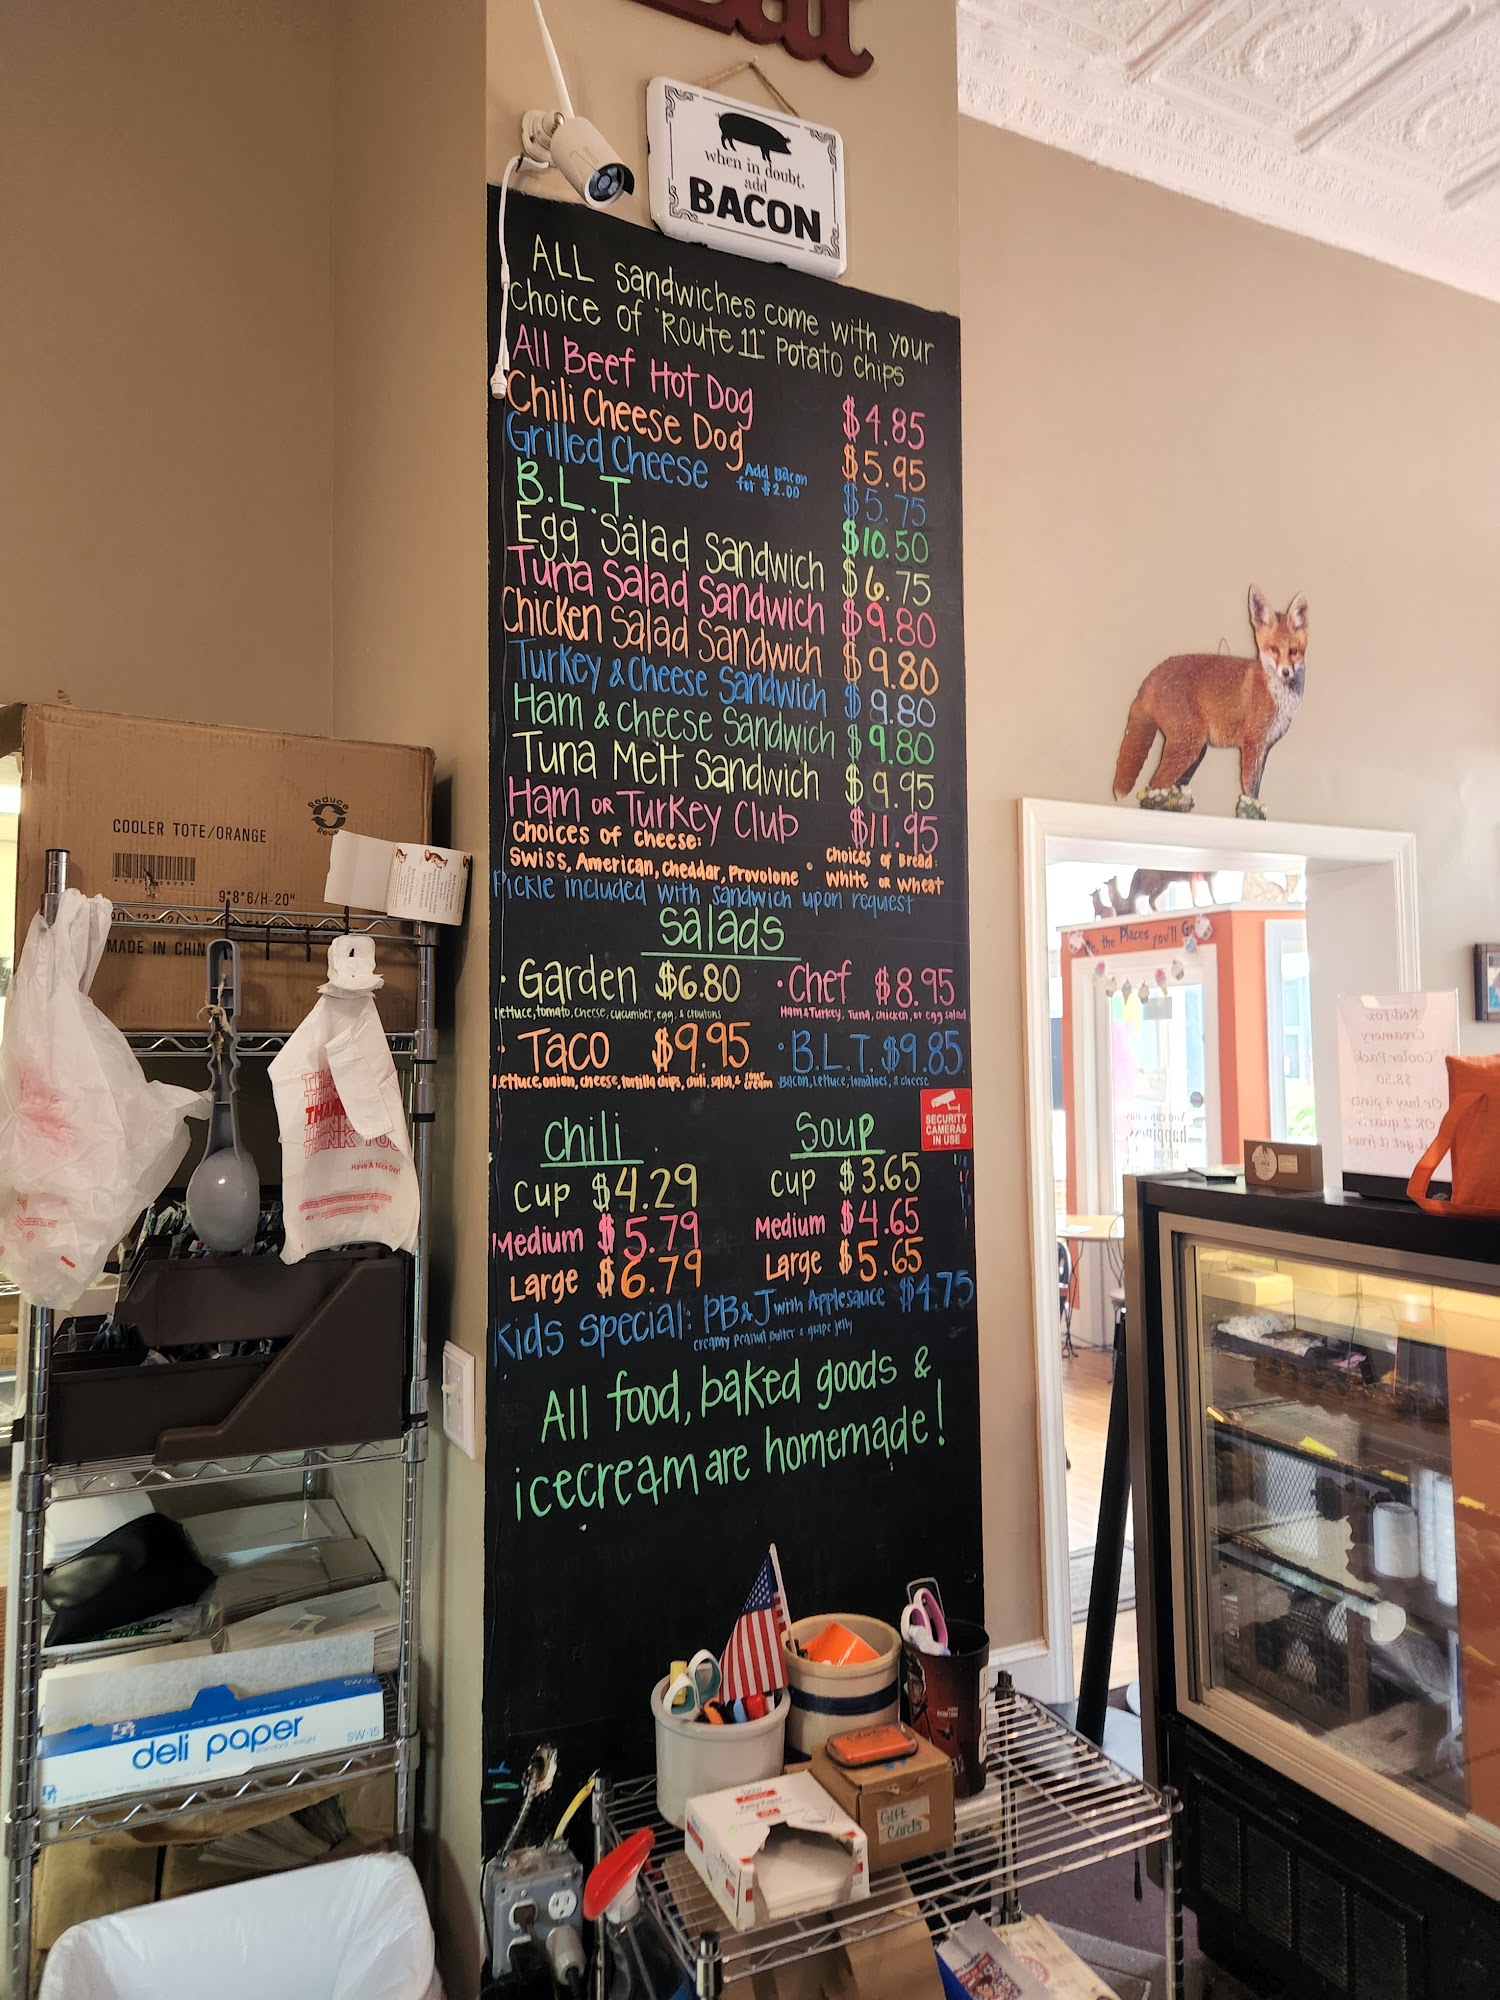 when in doubt,
add
BACON
ALL sandwiches come with your
choice of "Route 11" Potato chips
All Beef Hot Dog $4.85
Chili Cheese Dog $5.95
Grilled Cheese Add Bacon for $2.00 $5.75
B.L.T. $10.50
Egg Salad Sandwich $6.75
Tuna Salad Sandwich $9.80
Chicken Salad Sandwich $9.80
Turkey & Cheese Sandwich $9.80
Ham & Cheese Sandwich $9.80
Tuna Melt Sandwich $9.95
Ham or Turkey Club $11.95
Choices of cheese:
Swiss, American, cheddar, Provolone
Choices of Bread:
White or Wheat
Pickle included with sandwich upon request
Salads
· Garden $6.80
lettuce, tomato, cheese, cucumber, egg, & croutons
· Chef $8.95
Ham & Turkey, Tuna, chicken, or egg salad
· Taco $9.95
lettuce, onion, cheese, tortilla chips, chili, salsa, & sour cream
· B.L.T. $9.85
Bacon, Lettuce, Tomatoes, & cheese
SECURITY
CAMERAS
IN USE
Chili
Cup $4.29
Medium $5.79
Large $6.79
Soup
Cup $3.65
Medium $4.65
Large $5.65
Kids Special: PB&J with Applesauce $4.75
creamy Peanut Butter & grape jelly
All food, baked goods &
icecream are homemade!
COOLER TOTE/ORANGE
Reduce
9*8*6/H-20"
MADE IN CHIN
THANK YOU
Have A Nice Day!
deli paper
SW-15
Gift
Cards
Oh, the Places you'll Go
happiness
Red Fox
Creamery
Cooler Pack
$8.50